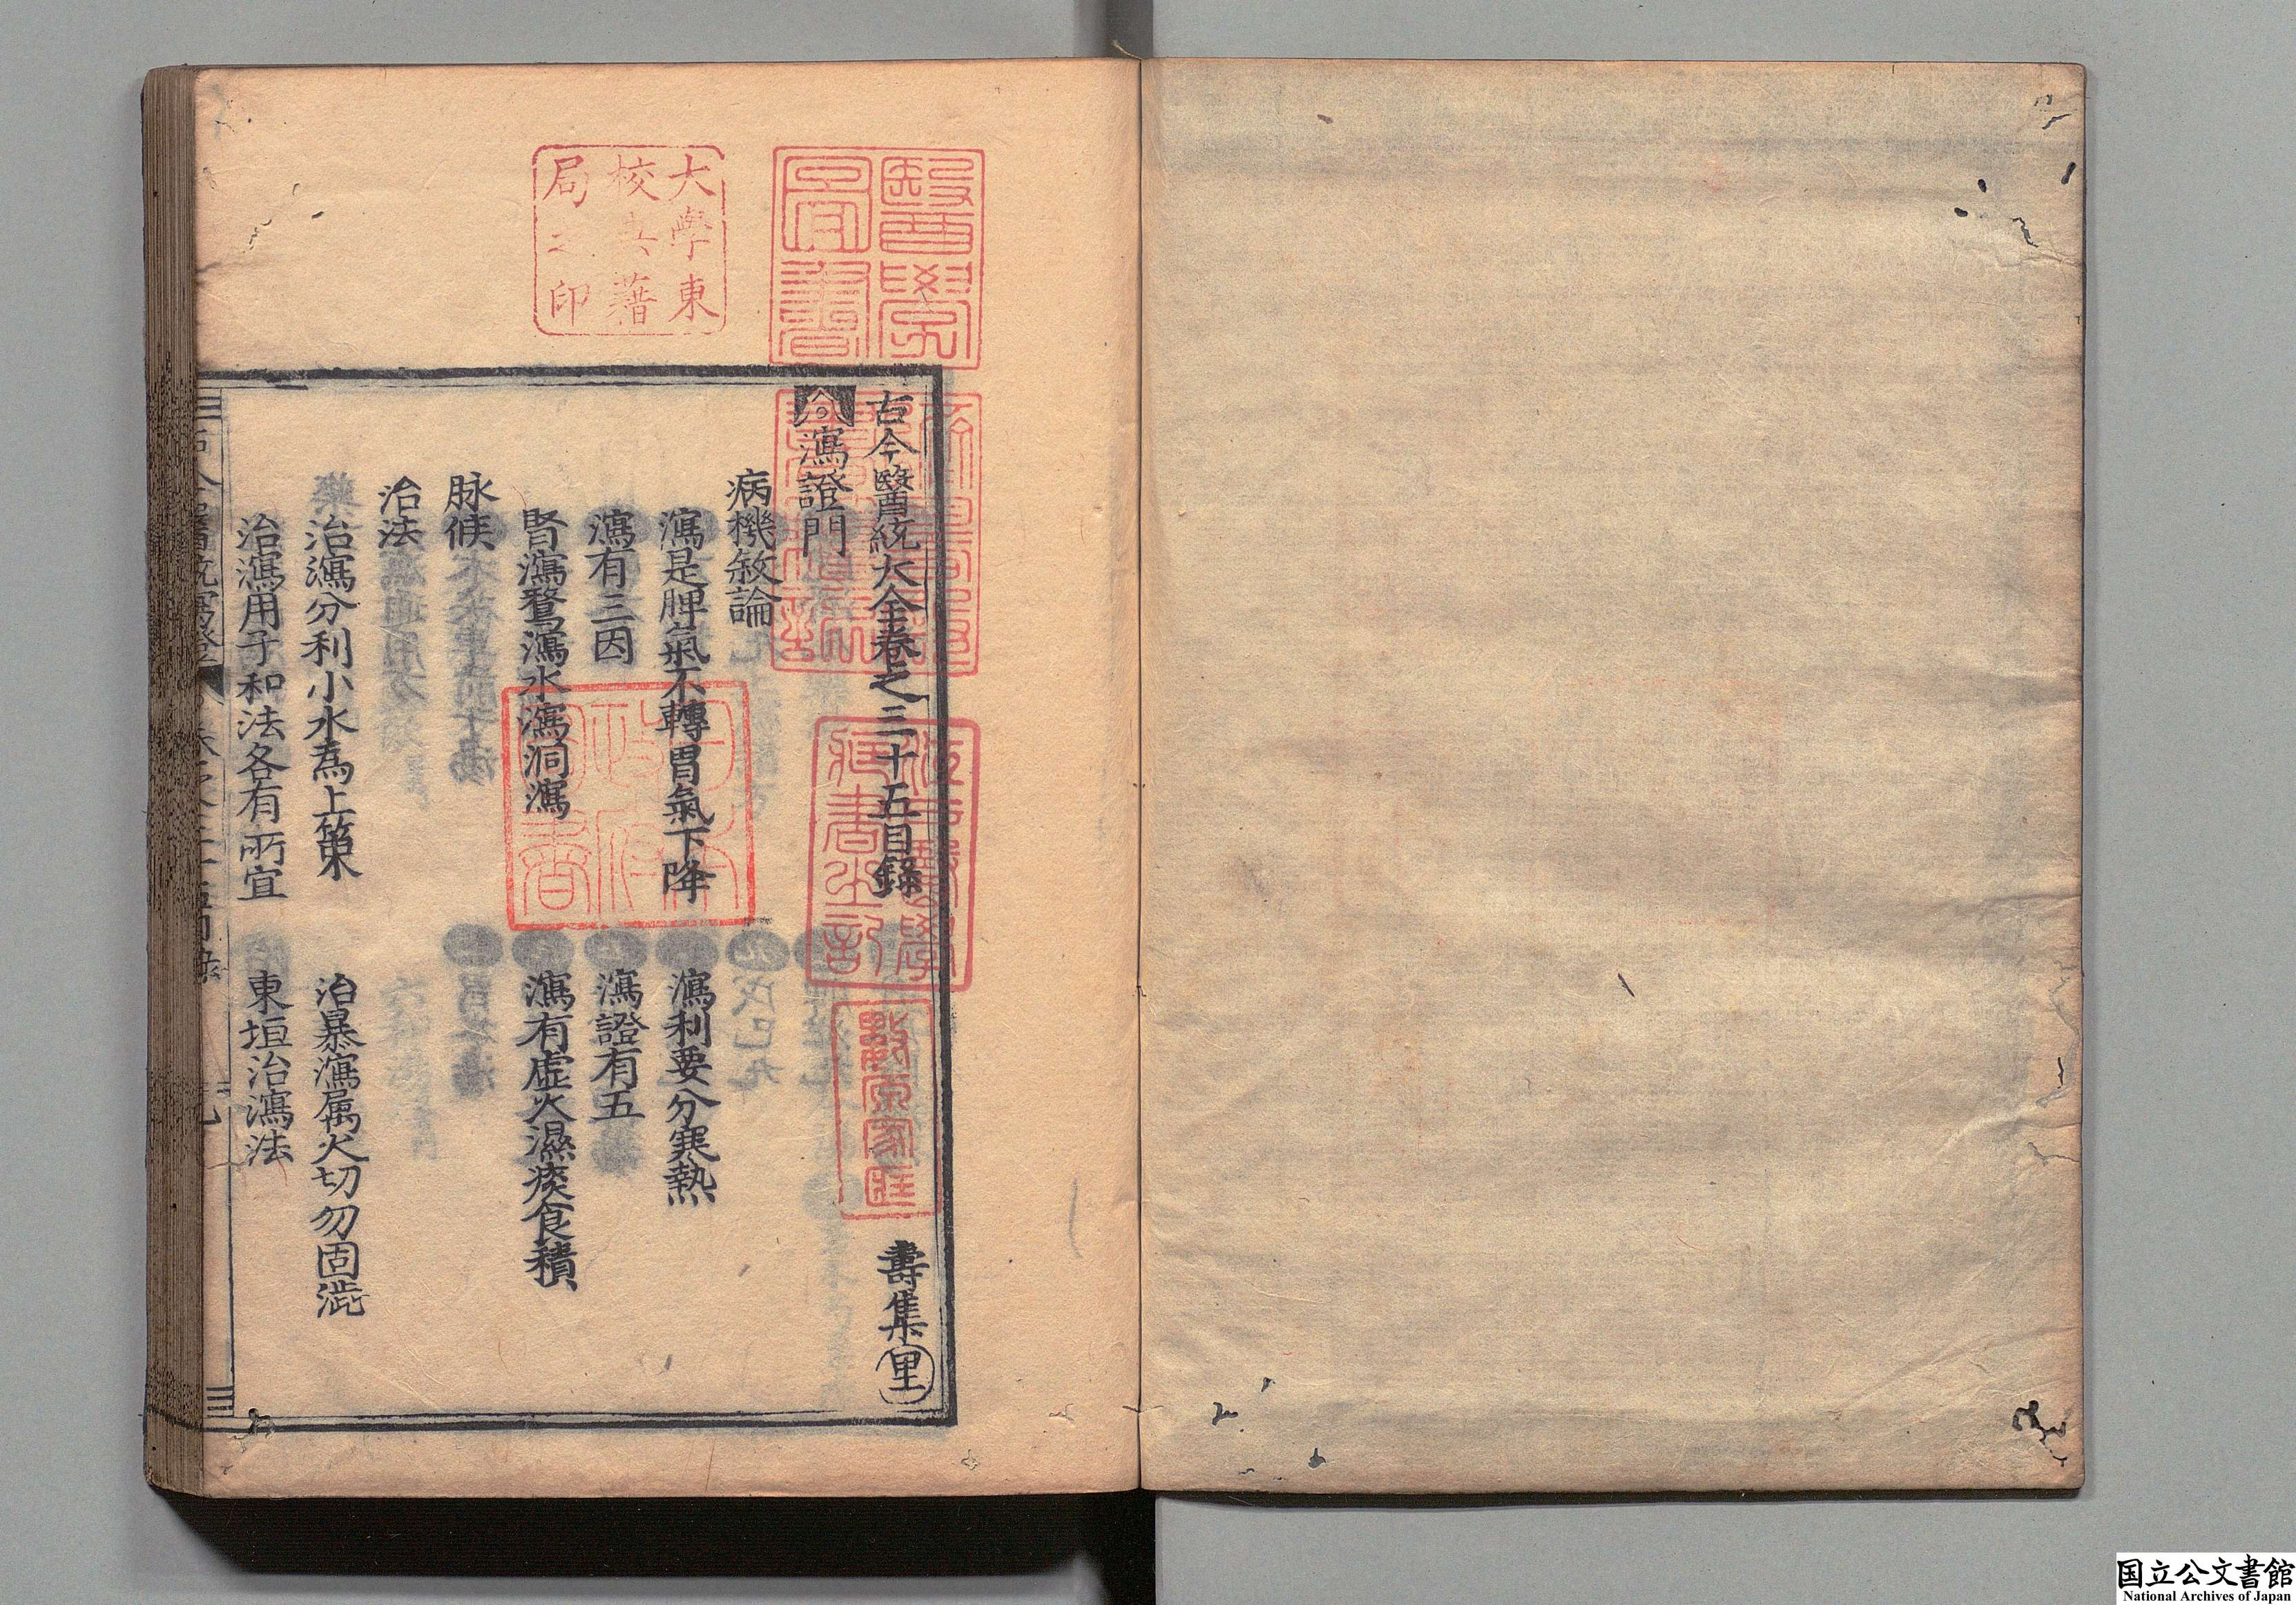 古今醫統大全卷之三十五目錄 壽集 里
瀉證門
病機敘論
瀉是脾氣不轉胃氣下降 瀉利要分寒熱
瀉有三因 瀉證有五
腎瀉鶩瀉水瀉洞瀉 瀉有虛火濕痰食積
脉候
治法
治瀉分利小水為上策 治暴瀉属火切勿固澁
治瀉用子和法各有所宜 東垣治瀉法
大學東
校典籍
局之印
醫學
圖書
江戶醫學
藏書之記
躋壽殿
書籍記
國立公文書館
National Archives of Japan